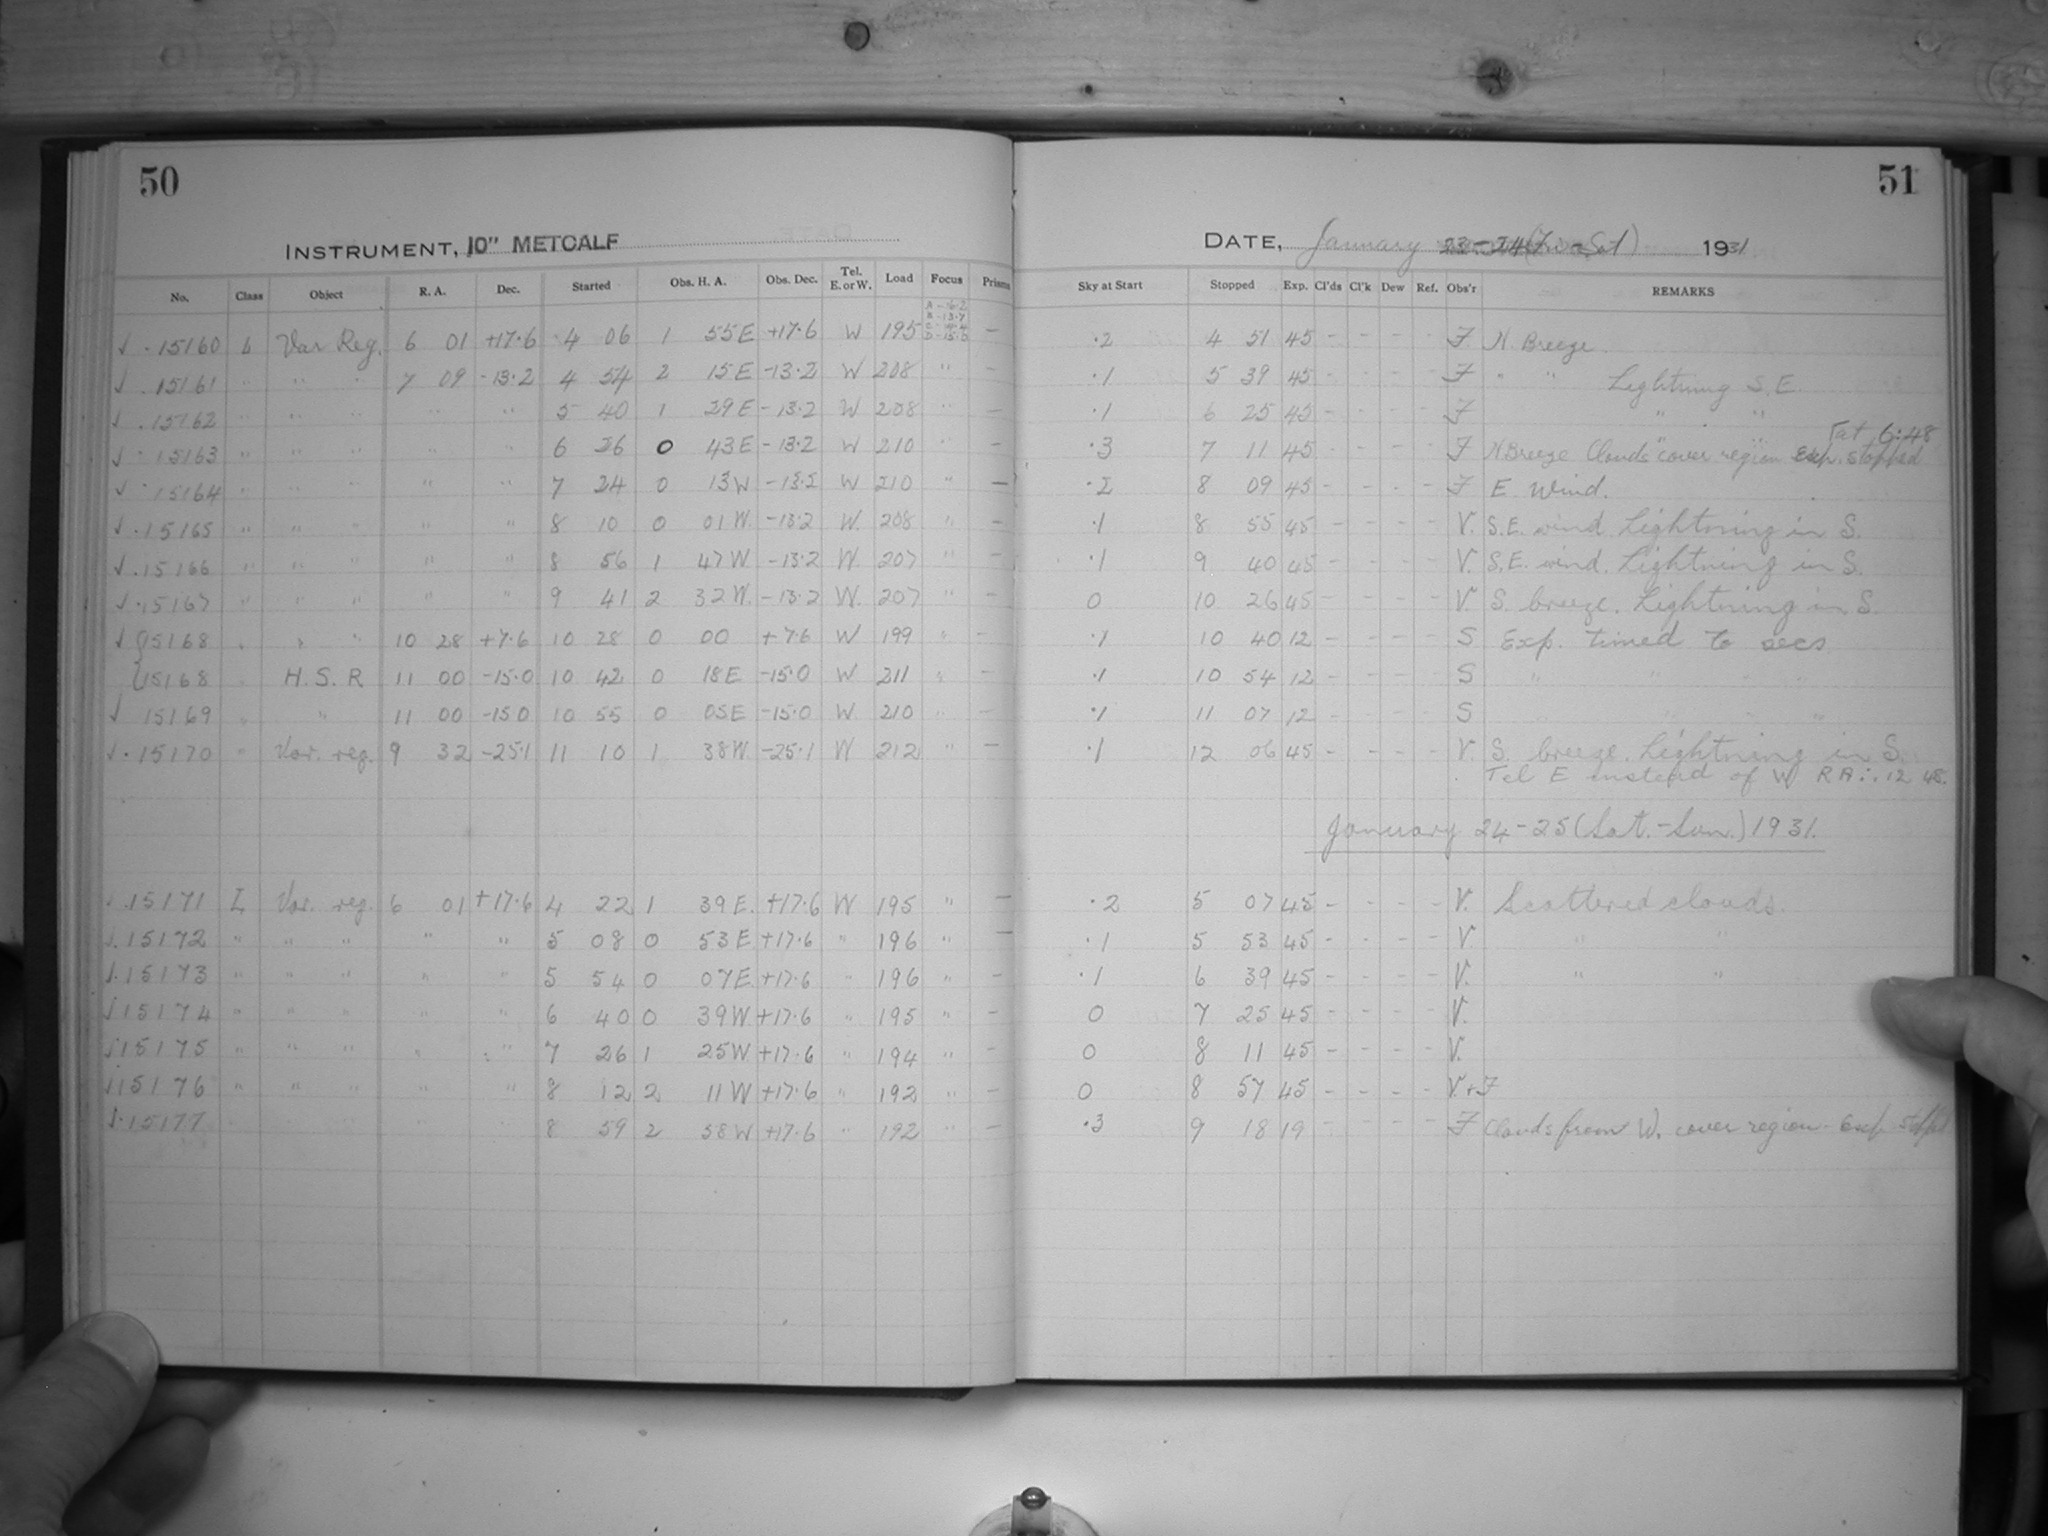 50
51
INSTRUMENT, 10" METCALF
DATE, January 23-24 (Fri-Sat) 1931
No. Class Object R. A. Dec. Started Obs. H. A. Obs. Dec. Tel. E. or W. Load Focus Prisms Sky at Start Stopped Exp. Cl'ds Cl'k Dew Ref. Obs'r REMARKS
√ . 15160 L Var Reg. 6 01 +17.6 4 06 1 55 E +17.6 W 195 — .2 4 51 45 - - - - F N. Breeze
√ . 15161 " " " 7 09 -13.2 4 54 2 15 E -13.2 W 208 " — .1 5 39 45 - - - - F " " Lightning S.E.
√ . 15162 " " " " " 5 40 1 29 E -13.2 W 208 " — .1 6 25 45 - - - - F " "
at 6:48
√ . 15163 " " " " " 6 26 0 43 E -13.2 W 210 " — .3 7 11 45 - - - - F N Breeze Clouds cover region Exp. stopped
√ . 15164 " " " " " 7 24 0 13 W -13.2 W 210 " — .2 8 09 45 - - - - F E. Wind.
√ . 15165 " " " " " 8 10 0 01 W. -13.2 W. 208 " — .1 8 55 45 - - - - V. S.E. wind. Lightning in S.
√ . 15166 " " " " " 8 56 1 47 W. -13.2 W. 207 " — .1 9 40 45 - - - - V. S.E. wind. Lightning in S.
√ . 15167 " " " " " 9 41 2 32 W. -13.2 W. 207 " — 0 10 26 45 - - - - V. S. breeze. Lightning in S.
√ 15168 " " " 10 28 +7.6 10 28 0 00 +7.6 W 199 " — .1 10 40 12 - - - - S Exp. timed to secs
15168 " H. S. R 11 00 -15.0 10 42 0 18 E -15.0 W 211 " — .1 10 54 12 - - - - S " " " "
√ 15169 " " 11 00 -15.0 10 55 0 05 E -15.0 W. 210 " — .1 11 07 12 - - - - S " " " "
√ . 15170 " Var. reg. 9 32 -25.1 11 10 1 38 W. -25.1 W 212 " — .1 12 06 45 - - - - V. S. breeze. Lightning in S.
Tel E instead of W R A ∴ 12 48.
January 24-25 (Sat.-Sun.) 1931.
√ . 15171 L Var. reg. 6 01 +17.6 4 22 1 39 E. +17.6 W 195 " — .2 5 07 45 - - - - V. Scattered clouds.
√ . 15172 " " " " " 5 08 0 53 E +17.6 " 196 " — .1 5 53 45 - - - - V " "
√ . 15173 " " " " " 5 54 0 07 E +17.6 " 196 " — .1 6 39 45 - - - - V. " "
√ 15174 " " " " " 6 40 0 39 W +17.6 " 195 " — 0 7 25 45 - - - - V.
√ 15175 " " " " " 7 26 1 25 W +17.6 " 194 " — 0 8 11 45 - - - - V.
√ 15176 " " " " " 8 12 2 11 W +17.6 " 192 " — 0 8 57 45 - - - - V. + F
√ . 15177 " " " " " 8 59 2 58 W +17.6 " 192 " — .3 9 18 19 - - - - F Clouds from W. cover region - Exp stopped